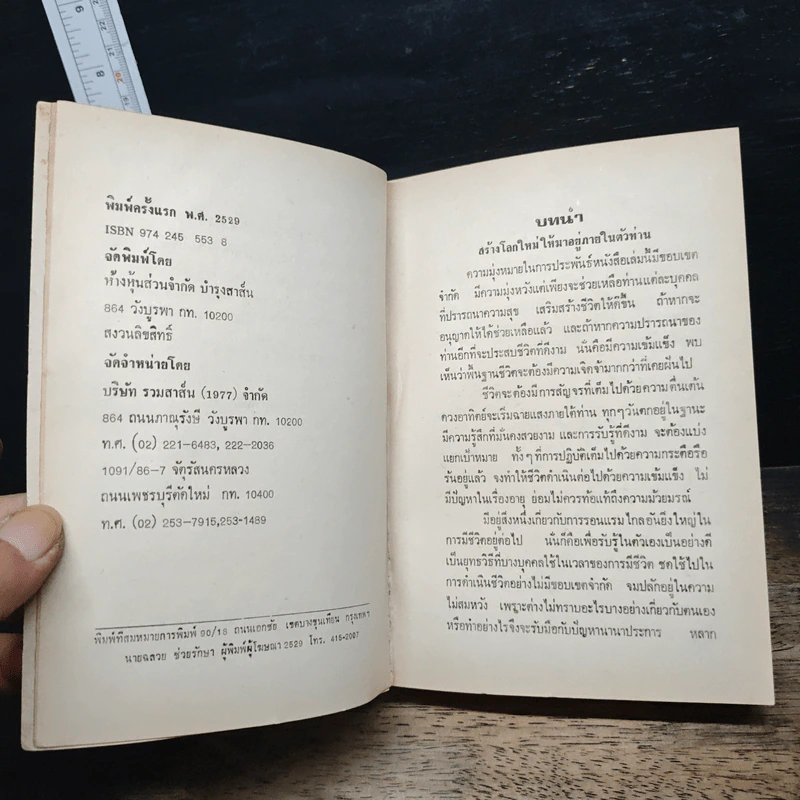 พิมพ์ครั้งแรก พ.ศ. 2529
ISBN 974 245 553 8
จัดพิมพ์โดย
ห้างหุ้นส่วนจำกัด บำรุงสาส์น
864 วังบูรพา กท. 10200
สงวนลิขสิทธิ์
จัดจำหน่ายโดย
บริษัท รวมสาส์น (1977) จำกัด
864 ถนนภาณุรังษี วังบูรพา กท. 10200
ท.ศ. (02) 221-6483, 222-2036
1091/86-7 จัตุรัสนครหลวง
ถนนเพชรบุรีตัดใหม่ กท. 10400
ท.ศ. (02) 253-7915,253-1489
พิมพ์ที่สมหมายการพิมพ์ 90/18 ถนนเอกชัย เขตบางขุนเทียน กรุงเทพฯ
นายฉลวย ช่วยรักษา ผู้พิมพ์ผู้โฆษณา 2529 โทร. 415-2007
บทนำ
สร้างโลกใหม่ให้มาอยู่ภายในตัวท่าน
ความมุ่งหมายในการประพันธ์หนังสือเล่มนี้มีขอบเขต
จำกัด มีความมุ่งหวังแต่เพียงจะช่วยเหลือท่านแต่ละบุคคล
ที่ปรารถนาความสุข เสริมสร้างชีวิตให้ดีขึ้น ถ้าหากจะ
อนุญาตให้ได้ช่วยเหลือแล้ว และถ้าหากความปรารถนาของ
ท่านอีกที่จะประสบชีวิตที่ดีงาม นั่นคือมีความเข้มแข็ง พบ
เห็นว่าพื้นฐานชีวิตจะต้องมีความเจิดจ้ามากกว่าที่เคยฝันไป
ชีวิตจะต้องมีการสัญจรที่เต็มไปด้วยความตื่นเต้น
ดวงอาทิตย์จะเริ่มฉายแสงภายใต้ท่าน ทุกๆวันตกอยู่ในฐานะ
มีความรู้สึกที่มั่นคงสวยงาม และการรับรู้ที่ดีงาม จะต้องแบ่ง
แยกเป้าหมาย ทั้งๆที่การปฏิบัติเต็มไปด้วยความกระตือรือ
ร้นอยู่แล้ว จงทำให้ชีวิตดำเนินต่อไปด้วยความเข้มแข็ง ไม่
มีปัญหาในเรื่องอายุ ย่อมไม่ควรท้อแท้ถึงความม้วยมรณ์
มีอยู่สิ่งหนึ่งเกี่ยวกับการรอนแรมไกลอันยิ่งใหญ่ใน
การมีชีวิตอยู่ต่อไป นั่นก็คือเพื่อรับรู้ในตัวเองเป็นอย่างดี
เป็นยุทธวิธีที่บางบุคคลใช้ในเวลาของการมีชีวิต ชดใช้ไปใน
การดำเนินชีวิตอย่างไม่มีขอบเขตจำกัด จมปลักอยู่ในความ
ไม่สมหวัง เพราะต่างไม่ทราบอะไรบางอย่างเกี่ยวกับตนเอง
หรือทำอย่างไรจึงจะรับมือกับปัญหานานาประการ หลาก